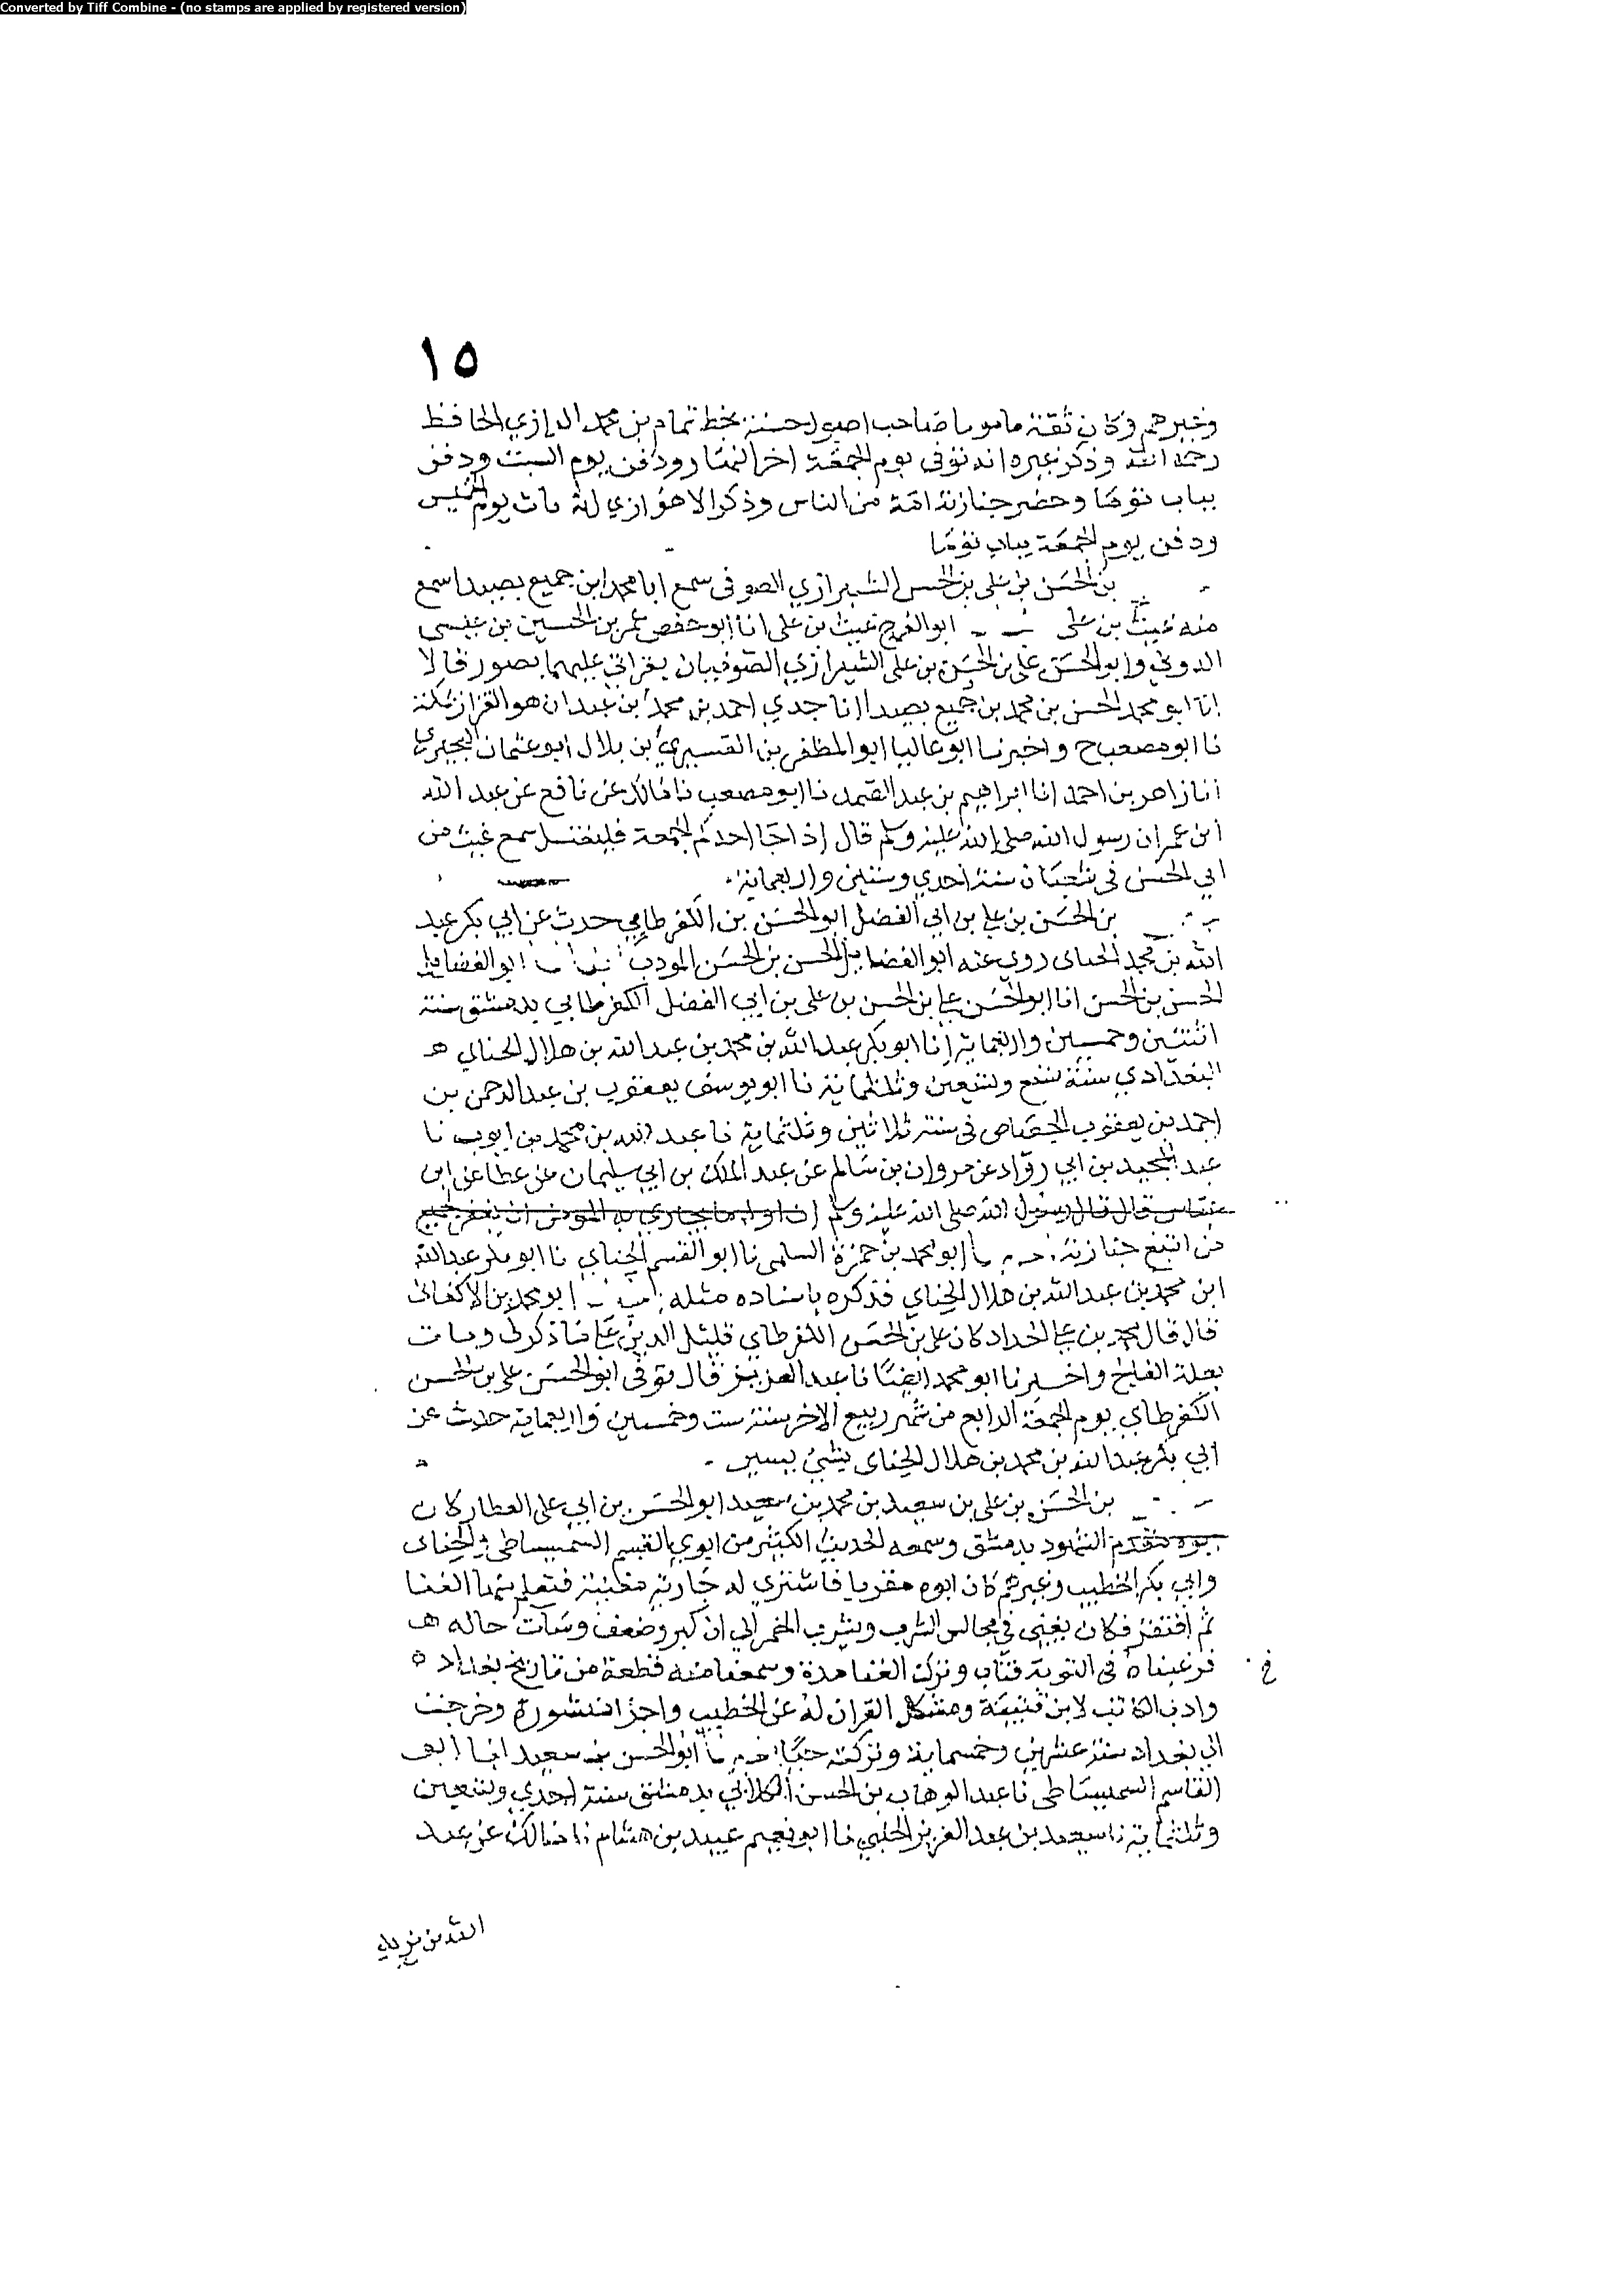 Converted by Tiff Combine - (no stamps are applied by registered version)
١٥
وغيرهم وكان ثقة مامونا صاحب اصول حسنة بخط تمام بن محمد الرازي الحافظ
رحمه الله وذكر غيره انه توفي يوم الجمعة اخر النهار ودفن يوم السبت ودفن
بباب توما وحضر جنازته امة من الناس وذكر الاهوازي انه مات يوم الخميس
ودفن يوم الجمعة بباب توما
بن الحسن بن علي بن الحسن الشيرازي الصوفي سمع ابا محمد ابن جميع بصيدا سمع
منه غيث بن علي ابو الفرج غيث بن علي انا ابو حفص عمر بن الحسين بن عيسى
الدوني وابو الحسن علي بن الحسن بن علي الشيرازي الصوفيان بقراتي عليهما بصور قالا
انا ابو محمد الحسن بن محمد بن جميع بصيدا انا جدي احمد بن محمد بن عبدان هو القزاز بمكة
نا ابو مصعب ح واخبرنا ابو غالب ابو المظفر بن القشيري بن بلال ابو عثمان البحيري
انا زاهر بن احمد انا ابراهيم بن عبد الصمد نا ابو مصعب نا مالك عن نافع عن عبد الله
ابن عمر ان رسول الله صلى الله عليه وسلم قال إذا جا احدكم الجمعة فليغتسل سمع غيث من
ابي الحسن في شعبان سنة احدي وستين واربعماية
بن الحسن بن علي بن ابي الفضل ابو الحسن بن الكفرطابي حدث عن ابي بكر عبد
الله بن محمد الحناى روى عنه ابو الفضايل الحسن بن الحسن المودب ابو الفضايل
الحسن بن الحسن انا ابو الحسن علي بن الحسن بن علي بن ابي الفضل الكفرطابي بدمشق سنة
اثنتين وخمسين واربعماية انا ابو بكر عبد الله بن محمد بن عبد الله بن هلال الحناي
البغدادي سنة تسع وتسعين وثلثماية نا ابو يوسف يعقوب بن عبد الرحمن بن
احمد بن يعقوب الجصاص في سنة ثلاثين وثلثماية نا عبد الله بن محمد بن ايوب نا
عبد المجيد بن ابي روّاد عن مروان بن سالم عن عبد الملك بن ابي سليمان عن عطا عن ابن
عباس قال قال رسول الله صلى الله عليه وسلم إن اول ما يجازي به المومن ان يغفر لجميع
من اتبع جنازته ابو محمد بن حمزة السلمي نا ابو القسم الحناي نا ابو بكر عبد الله
ابن محمد بن عبد الله بن هلال الحناي فذكره باسناده مثله ابو محمد بن الاكفاني
قال قال محمد بن علي الحداد كان علي بن الحسن الكفرطاي قليل الدين علي ما ذكر لي ومات
بعلة الفالج واخبرنا ابو محمد ايضًا نا عبد العزيز قال توفي ابو الحسن علي بن الحسن
الكفرطابي يوم الجمعة الرابع من شهر ربيع الاخر سنة ست وخمسين واربعماية حدث عن
ابي بكر عبد الله بن محمد بن هلال الحناى بشئ يسير
بن الحسن بن علي بن سعيد بن محمد بن سعيد ابو الحسن بن ابي علي العطار كان
ابوه مقدم الشهود بدمشق وسمعه الحديث الكثير من ابوي القسم السميساطي والحناى
وابي بكر الخطيب وغيرهم كان ابوه مقريا فاشتري له جارية مغنية فتعلم منها الغنا
ثم افتقر فكان يغني في مجالس الشرب ويشرب الخمر الي ان كبر وضعف وسآت حاله
فرغبناه في التوبة فتاب وترك الغنا مدة وسمعنا منه قطعة من تاريخ بغداد
خ
وادب الكاتب لابن قتيبة ومشكل القران له عن الخطيب واجزا منثورة وخرجت
الي بغداد سنة عشرين وخمسماية وتركته حيًا ابو الحسن بن سعيد انا ابو
القاسم السميساطي نا عبد الوهاب بن الحسن الكلابي بدمشق سنة احدي وتسعين
وثلثماية نا سعيد بن عبد العزيز الحلبي نا ابو نعيم عبيد بن هشام نا مالك عن عبد
الله بن يزيد